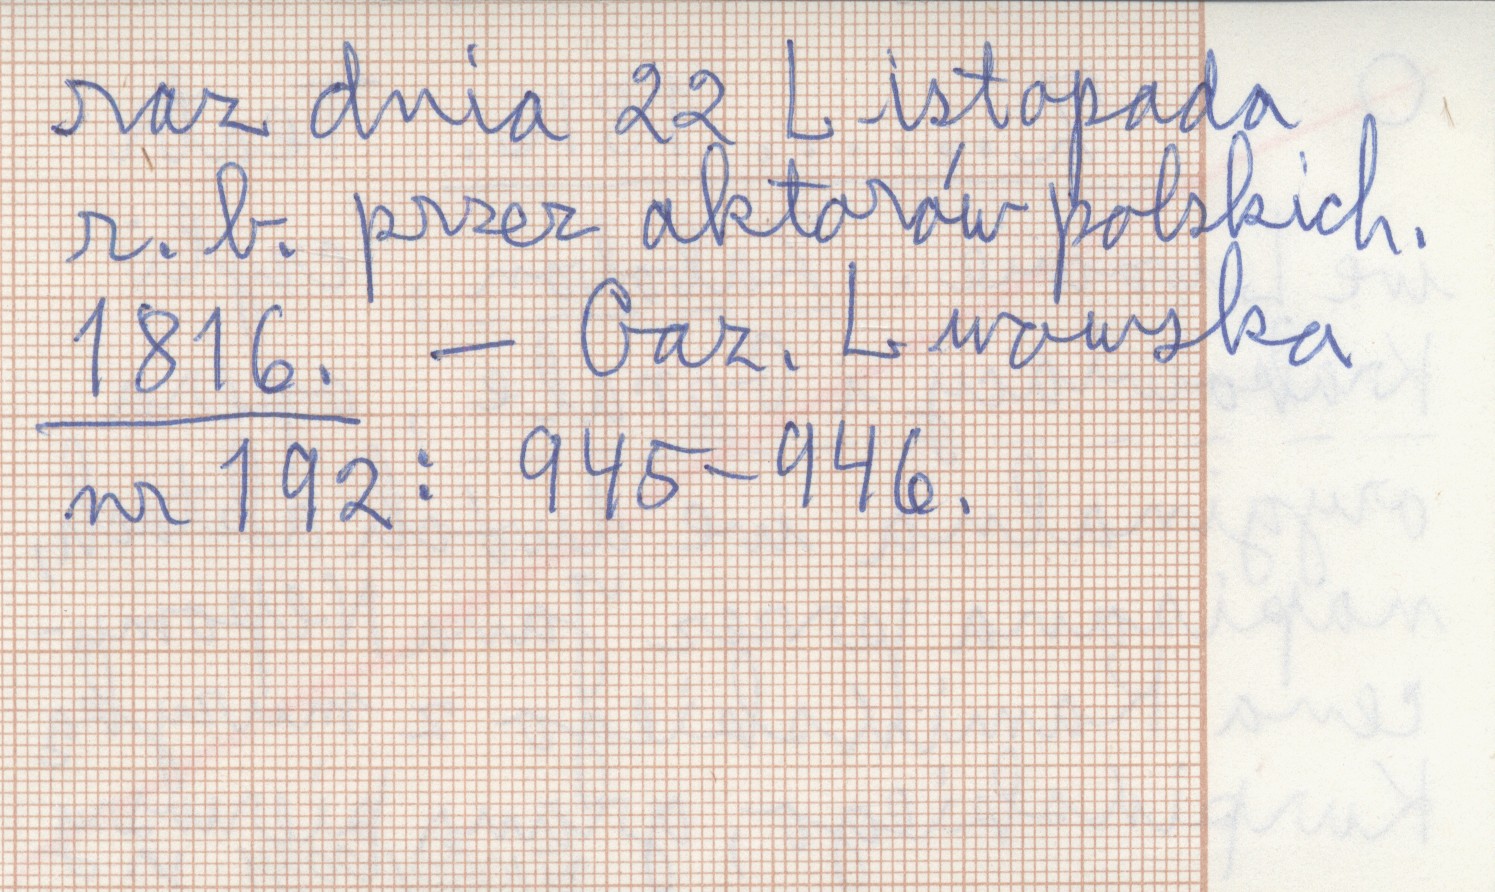 raz dnia 22 Listopada
r. b. przez aktorów polskich.
1816. – Gaz. Lwowska
nr 192: 945–946.